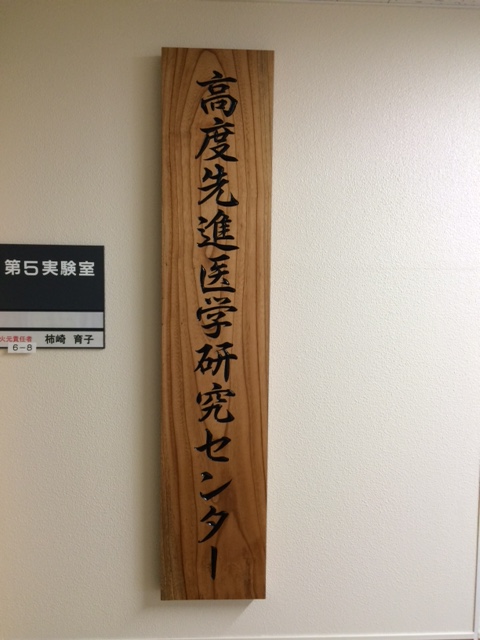 高度先進医学研究センター
第5実験室
火元責任者 柿崎 育子
6-8